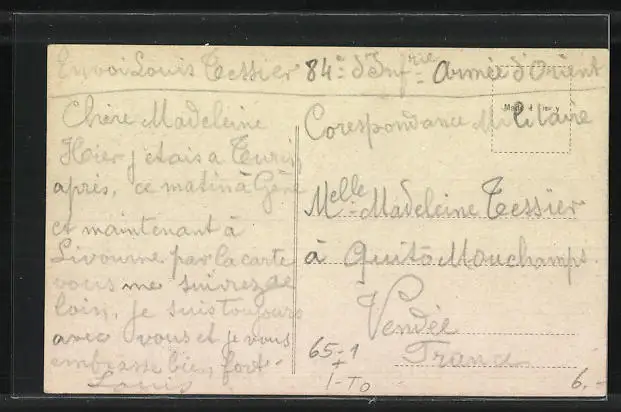 Envoi Louis Tessier 84e d'Infrie Armée d'Orient
Made d Itay
Chère Madeleine
Hier j'étais a Turin
après, ce matin à Gêne
et maintenant à
Livourne par la carte
vous me suivrez de
loin, je suis toujours
avec vous et je vous
embrasse bien fort.
Louis
Corespondance Militaire
Melle Madeleine Tessier
à Mouchamps.
Vendée
France
65-1
+
I-To
6.-